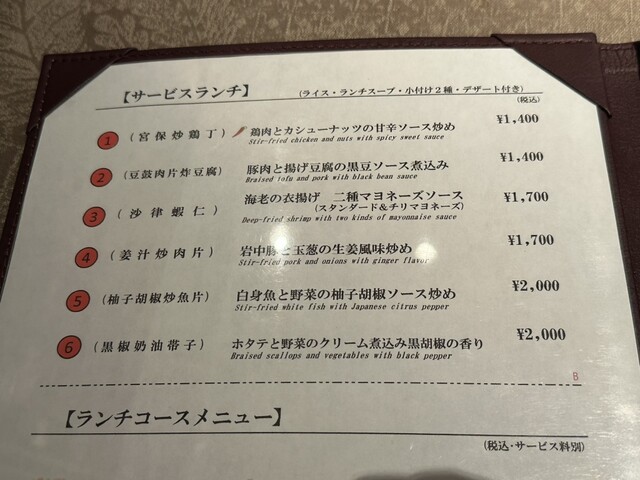 【サービスランチ】
(ライス・ランチスープ・小付け2種・デザート付き)
(税込)
1 (宮保炒鶏丁) 鶏肉とカシューナッツの甘辛ソース炒め ¥1,400
Stir-fried chicken and nuts with spicy sweet sauce
2 (豆鼓肉片炸豆腐) 豚肉と揚げ豆腐の黒豆ソース煮込み ¥1,400
Braised tofu and pork with black bean sauce
3 (沙律蝦仁) 海老の衣揚げ 二種マヨネーズソース ¥1,700
(スタンダード&チリマヨネーズ)
Deep-fried shrimp with two kinds of mayonnaise sauce
4 (姜汁炒肉片) 岩中豚と玉葱の生姜風味炒め ¥1,700
Stir-fried pork and onions with ginger flavor
5 (柚子胡椒炒魚片) 白身魚と野菜の柚子胡椒ソース炒め ¥2,000
Stir-fried white fish with Japanese citrus pepper
6 (黒椒奶油帯子) ホタテと野菜のクリーム煮込み黒胡椒の香り ¥2,000
Braised scallops and vegetables with black pepper
B
【ランチコースメニュー】
(税込・サービス料別)